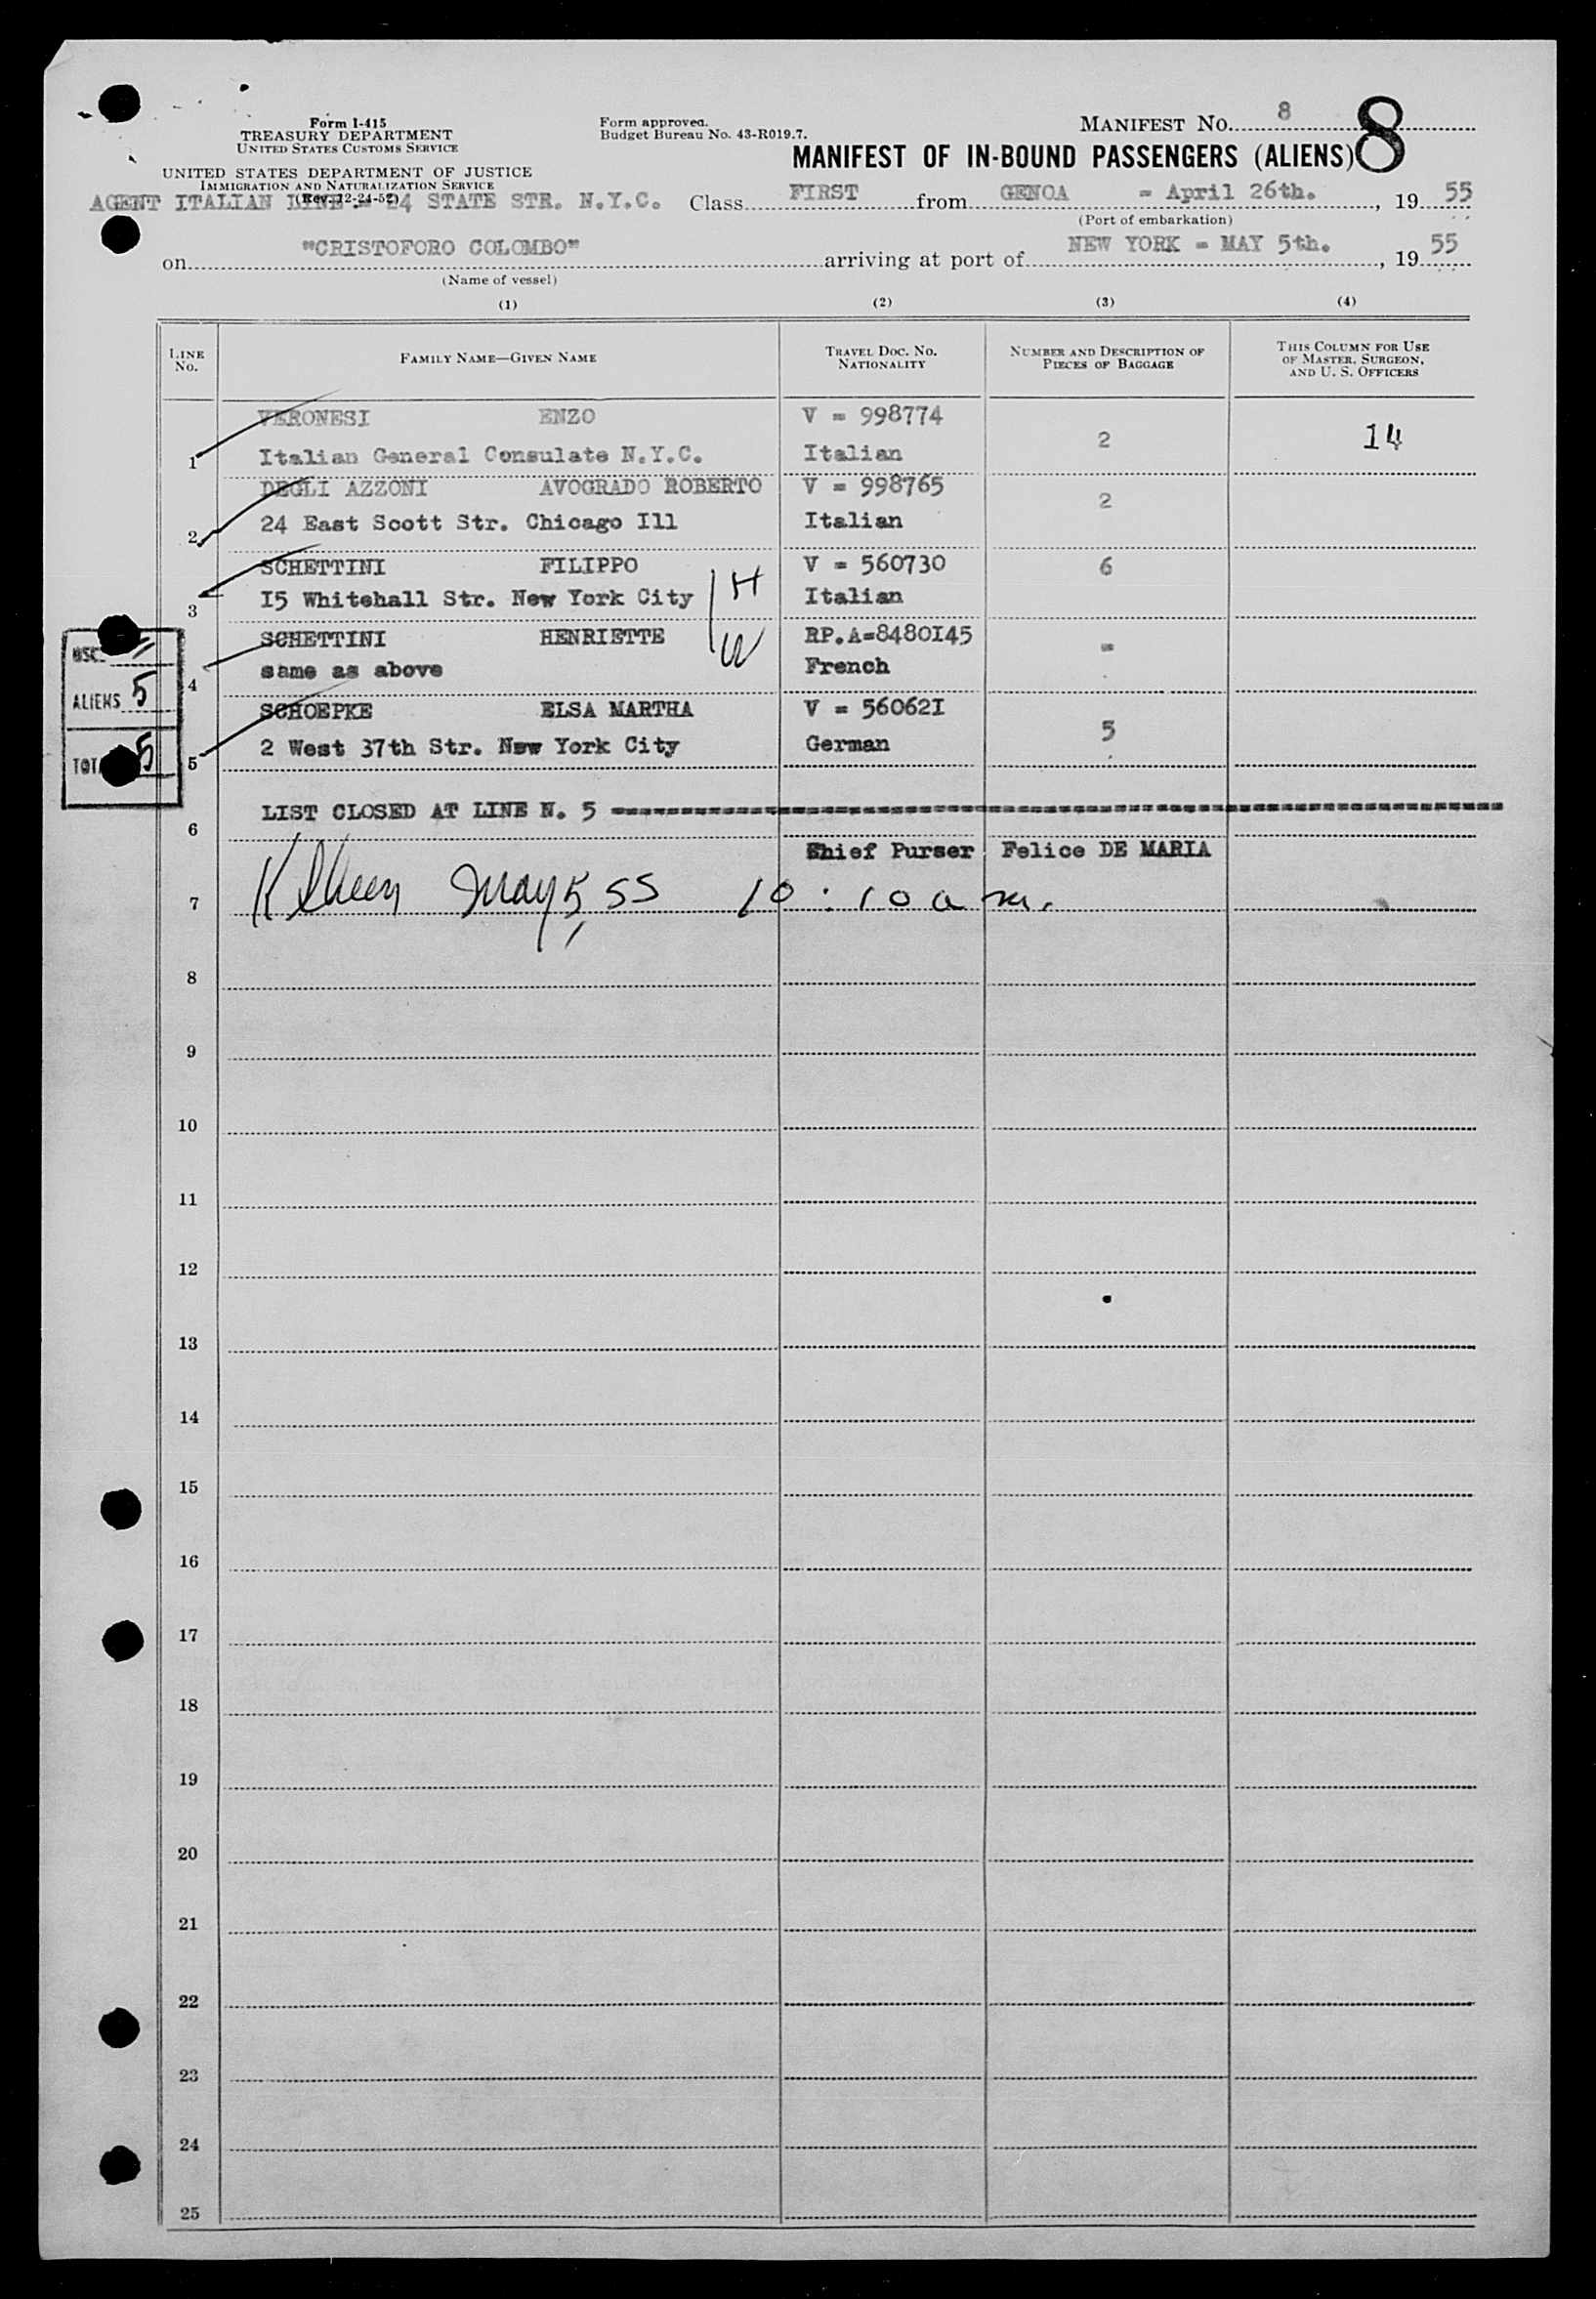 Form I-415
TREASURY DEPARTMENT
UNITED STATES CUSTOMS SERVICE
UNITED STATES DEPARTMENT OF JUSTICE
IMMIGRATION AND NATURALIZATION SERVICE
(Rev. 12-24-52)
Form approved.
Budget Bureau No. 43-R019.7.
MANIFEST NO. 8
8
MANIFEST OF IN-BOUND PASSENGERS (ALIENS)
AGENT ITALIAN LINE = 24 STATE STR. N.Y.C. Class FIRST from GENOA = April 26th., 19 55
(Port of embarkation)
on "CRISTOFORO COLOMBO" arriving at port of NEW YORK = MAY 5th., 19 55
(Name of vessel)
(1) (2) (3) (4)
LINE NO. FAMILY NAME—GIVEN NAME TRAVEL DOC. NO. NATIONALITY NUMBER AND DESCRIPTION OF PIECES OF BAGGAGE THIS COLUMN FOR USE OF MASTER, SURGEON, AND U. S. OFFICERS
VERONESI ENZO V = 998774
1 Italian General Consulate N.Y.C. Italian 2 14
DEGLI AZZONI AVOGRADO ROBERTO V = 998765
2 24 East Scott Str. Chicago Ill Italian 2
SCHETTINI FILIPPO V = 560730 6
3 I5 Whitehall Str. New York City H Italian
SCHETTINI HENRIETTE W RP.A=8480I45 =
4 same as above French
SCHOEPKE ELSA MARTHA V = 56062I
5 2 West 37th Str. New York City German 5
USC
ALIENS 5
TOTAL 5
6 LIST CLOSED AT LINE N. 5
Chief Purser Felice DE MARIA
7 May 5, 55 10:10 a m.
8
9
10
11
12
13
14
15
16
17
18
19
20
21
22
23
24
25